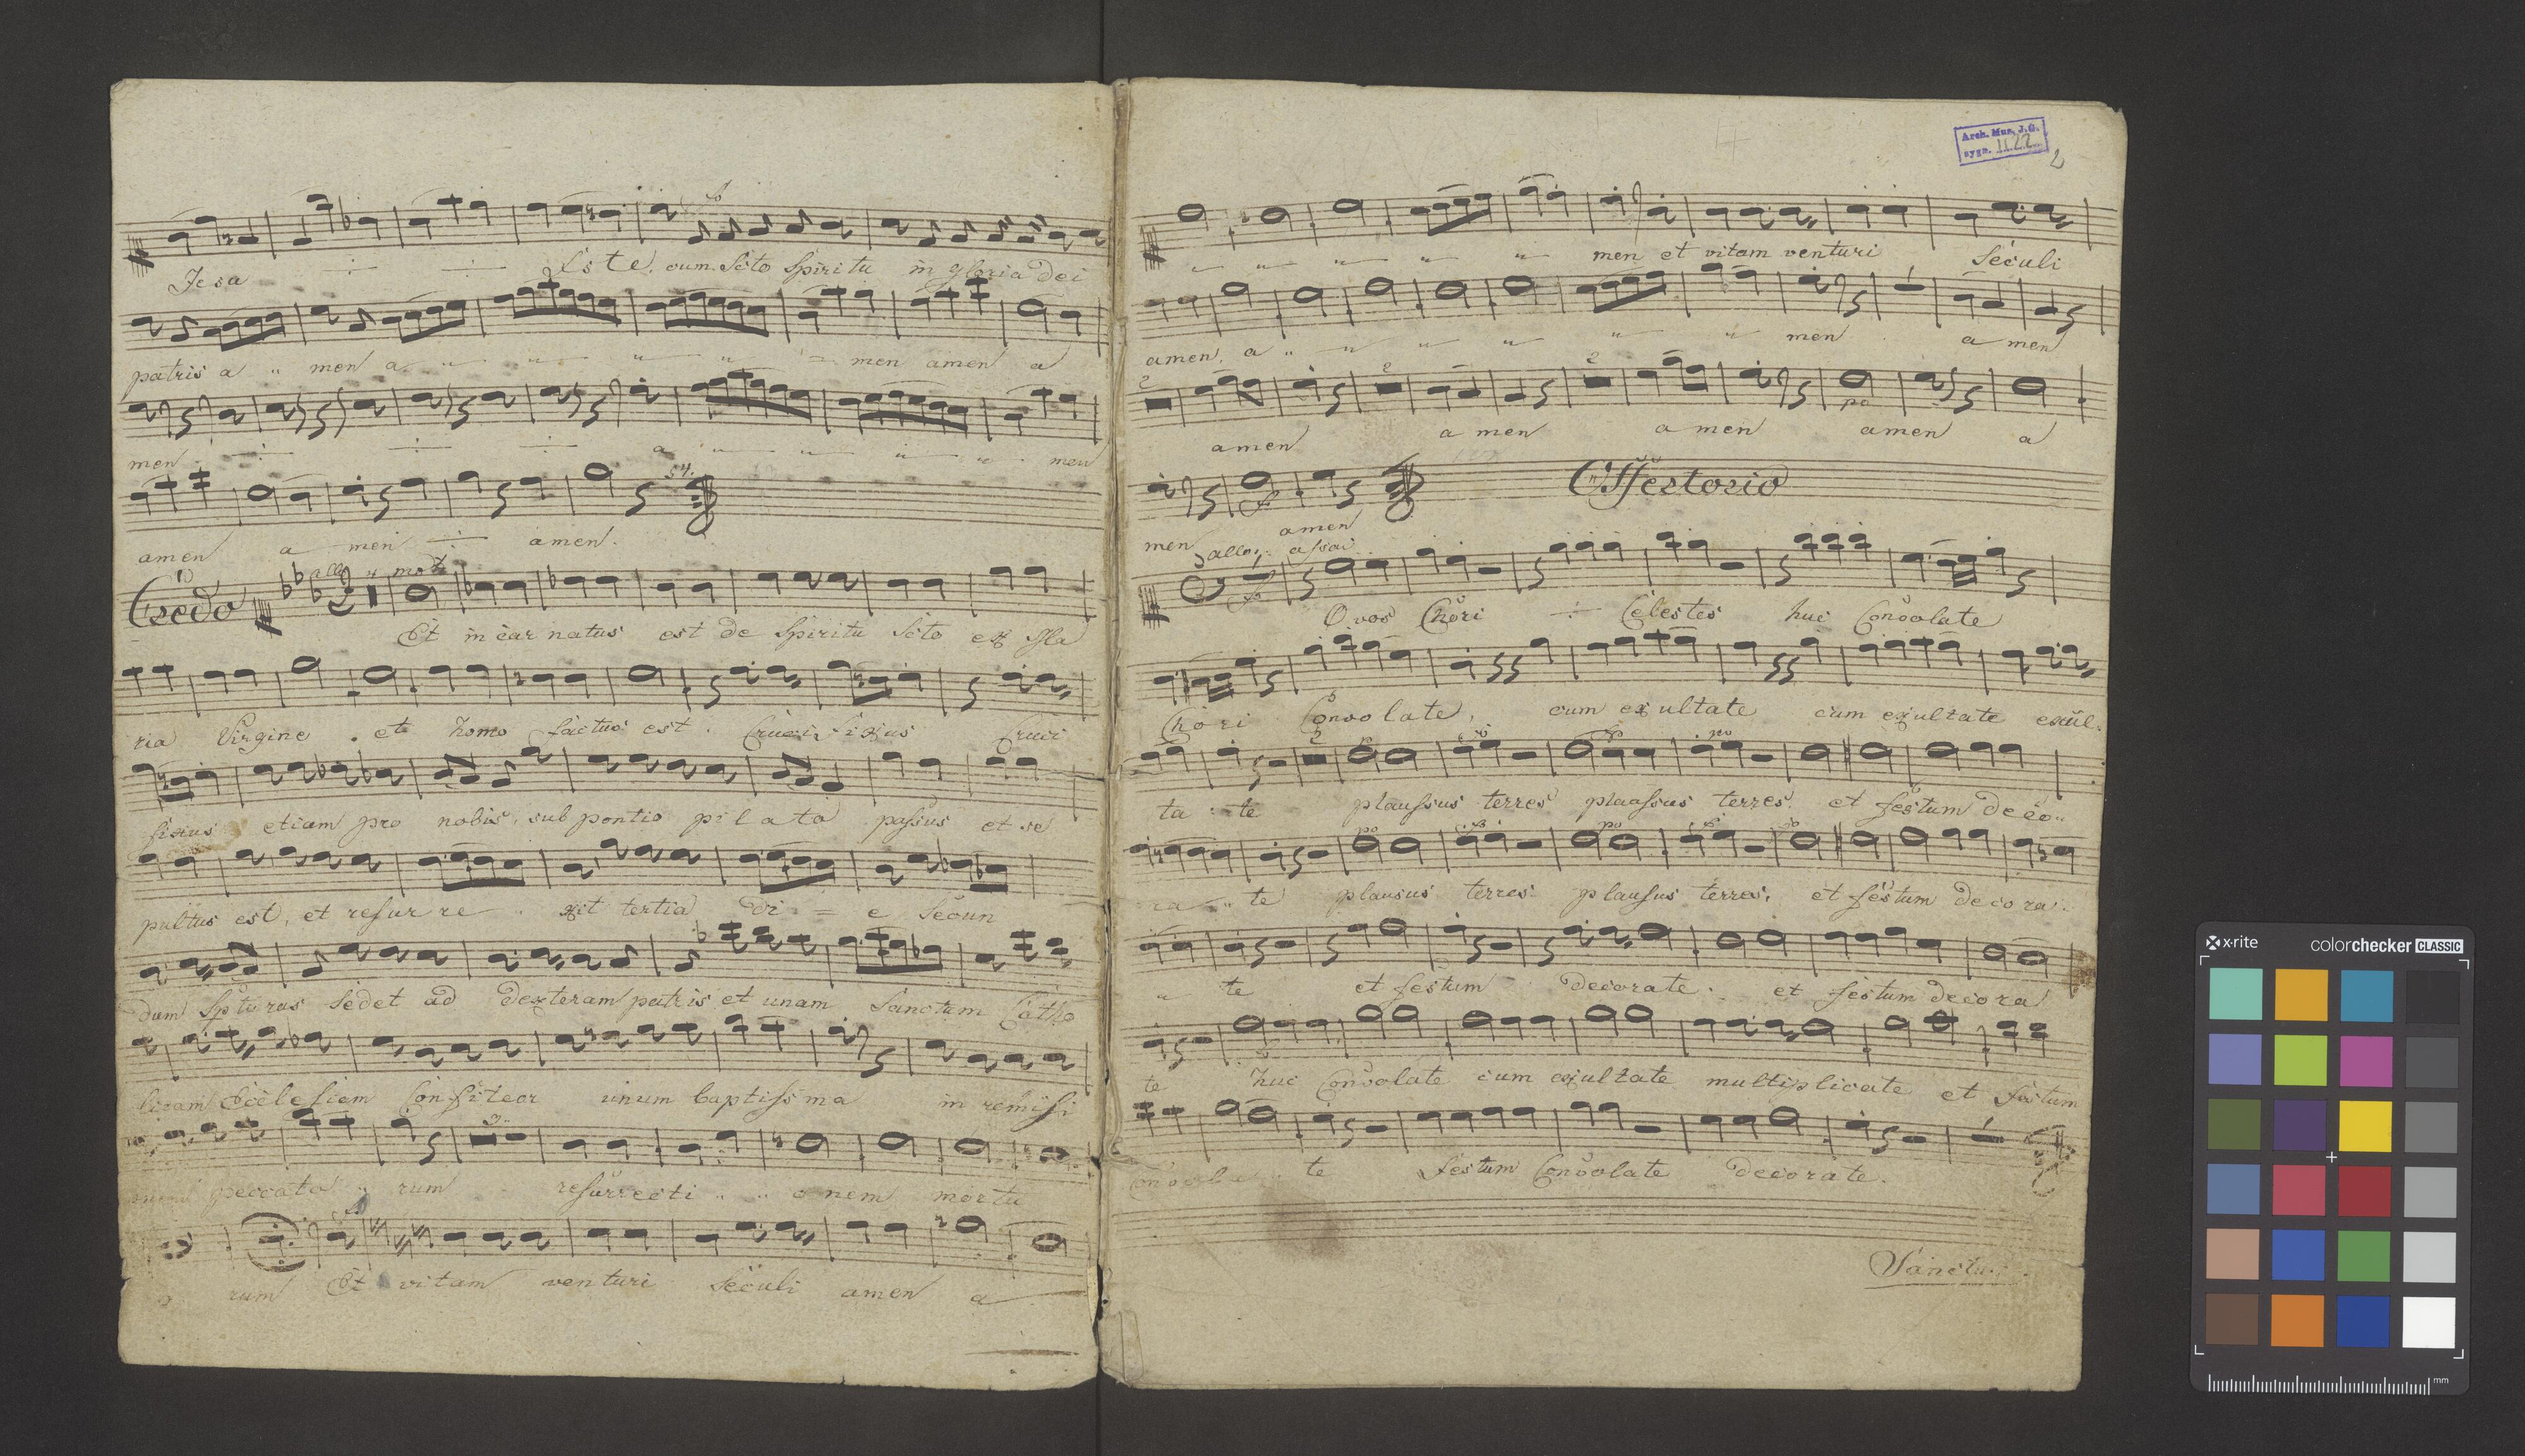 Jesa
Xste. cum Scto Spiritu in gloria dei
patris a men a men amen a
men a men
54.
amen a men amen.
Credo
allo mot
Et incarnatus est de Spiritu Scto ex Ma
ria Virgine et homo factus est. Crucifixus Cruci
fixus etiam pro nobis, sub pontio pilato passus et se
pultus est, et resurre xit tertia di = e Secun
dum Spturas Sedet ad dexteram patris et unam Sanctam Catho
licam Ecclesiam Confiteor unum baptissma in remissi
onem peccato rum resurrecti onem mortu
o rum Et vitam venturi seculi amen a
Arch. Mus. J.G.
sygn. II.22
2
men et vitam venturi Seculi
amen, a men a men
2 2 2 po
amen a men a men amen a
Offertorio
men amen
allo: assai
O vos Chori Celestes huc Convolate
Chori Convolate, cum exultate cum exultate exul-
2 po
ta te plaussus terres plaassus terres et festum deco
ra te plausus terres plausus terres, et festum decora
te et festum decorate. et festum decora
te huc Convolate cum exultate multiplicate et festum
Convola te festum Convolate decorate.
Sanctus
x-rite colorchecker CLASSIC
mm